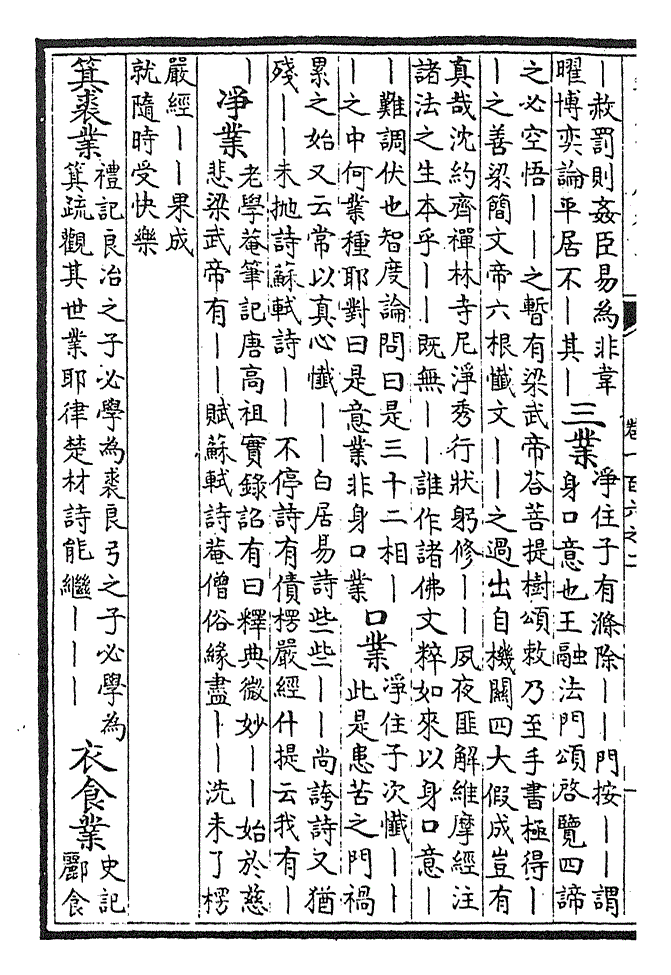 —赦罰則姦臣易為非韋
曜博弈論平居不—其—
三業
淨住子有滌除——門按——謂
身口意也王融法門頌啓覽四諦
之必空悟——之暫有梁武帝荅菩提樹頌敕乃至手書極得—
—之善梁簡文帝六根懺文——之過出自機關四大假成豈有
真哉沈約齊禪林寺尼淨秀行狀躬修——夙夜匪解維摩經注
諸法之生本乎——既無——誰作諸佛文粹如來以身口意—
—難調伏也智度論問曰是三十二相—
—之中何業種耶對曰是意業非身口業
口業
淨住子次懺——
此是患苦之門禍
累之始又云常以真心懺——白居易詩些些——尚誇詩又猶
殘——未抛詩蘇軾詩——不停詩有債楞嚴經什提云我有—
—
淨業
老學菴筆記唐高祖實錄詔有曰釋典微妙——始於慈
悲梁武帝有——賦蘇軾詩菴僧俗緣盡——洗未了楞
嚴經——果成
就隨時受快樂
箕裘業
禮記良冶之子必學為裘良弓之子必學為
箕疏觀其世業耶律楚材詩能繼———
衣食業
史記
酈食